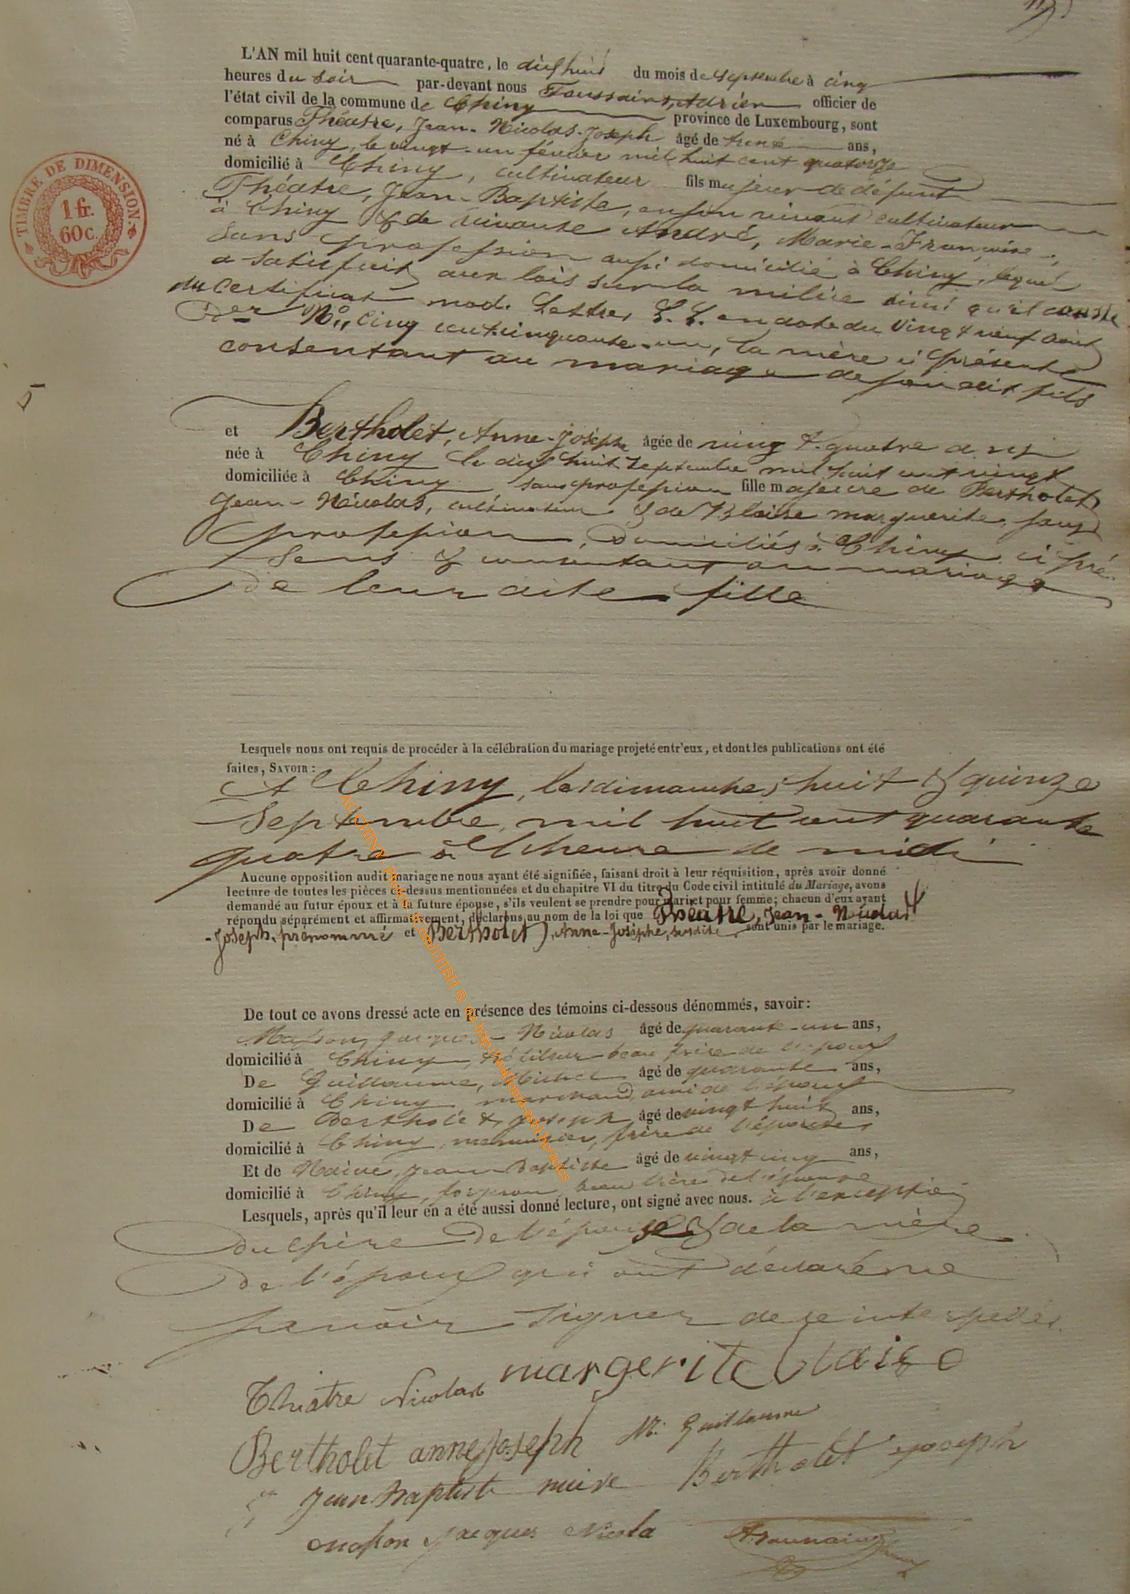 L'AN mil huit cent quarante-quatre, le dix huit du mois de septembre à cinq
heures du soir par-devant nous Toussaint, Adrien officier de
l'état civil de la commune de Chiny province de Luxembourg, sont
comparus Théatre, Jean-Nicolas-Joseph âgé de trente ans,
né à Chiny, le vingt-un février mil huit cent quatorze
domicilié à Chiny, cultivateur fils majeur de défunt
Théatre, Jean-Baptiste, en son vivant cultivateur
à Chiny & de vivante André, Marie-Françoise,
sans profession aussi domicilié à Chiny, lequel
a satisfait aux lois sur la milice ainsi qu'il conste
du certificat mod. Lettre L. L. en date du vingt neuf août
der No cinq cent cinquante-un, la mère ci présente
consentant au mariage de son dit fils
5
et Bertholet, Anne-Josèphe âgée de vingt & quatre ans
née à Chiny le dix huit septembre mil huit cent vingt
domiciliée à Chiny sans profession fille majeure de Bertholet
Jean-Nicolas, cultivateur & de Blaise marguerite, sans
profession, domiciliés à Chiny ci pré-
sens & consentant au mariage
De leur dite fille
TIMBRE DE DIMENSION.
1 fr.
60 c.
Lesquels nous ont requis de procéder à la célébration du mariage projeté entr'eux, et dont les publications ont été
faites, SAVOIR:
A Chiny, les dimanches huit & quinze
Septembre mil huit cent quarante
quatre à l'heure de midi
Aucune opposition audit mariage ne nous ayant été signifiée, faisant droit à leur réquisition, après avoir donné
lecture de toutes les pièces ci-dessus mentionnées et du chapitre VI du titre du Code civil intitulé du Mariage, avons
demandé au futur époux et à la future épouse, s'ils veulent se prendre pour mari et pour femme; chacun d'eux ayant
répondu séparément et affirmativement, déclarons au nom de la loi que Théatre, Jean-Nicolas
-Joseph, prénommé et Bertholet, Anne-Josèphe, susdite sont unis par le mariage.
De tout ce avons dressé acte en présence des témoins ci-dessous dénommés, savoir:
Masson, Jacques Nicolas âgé de quarante-un ans,
domicilié à Chiny, beau frère de l'époux
De Guillaume, Michel âgé de quarante ans,
domicilié à Chiny marchand, ami de l'époux
De Bertholet, Joseph âgé de vingt huit ans,
domicilié à Chiny, menuisier, frère de l'épouse
Et de Naive, Jean Baptiste âgé de vingt cinq ans,
domicilié à Chiny, forgeron, beau frère de l'épouse
Lesquels, après qu'il leur en a été aussi donné lecture, ont signé avec nous. à l'exception
du père de l'épouse & de la mère
de l'époux qui ont déclaré ne
savoir signer de ce interpellés.
Théatre Nicolas margerite blaise
Bertholet anne joseph M. Guillaume
Jean Baptiste naive Bertholet joseph
masson jacques Nicola A. Toussaint